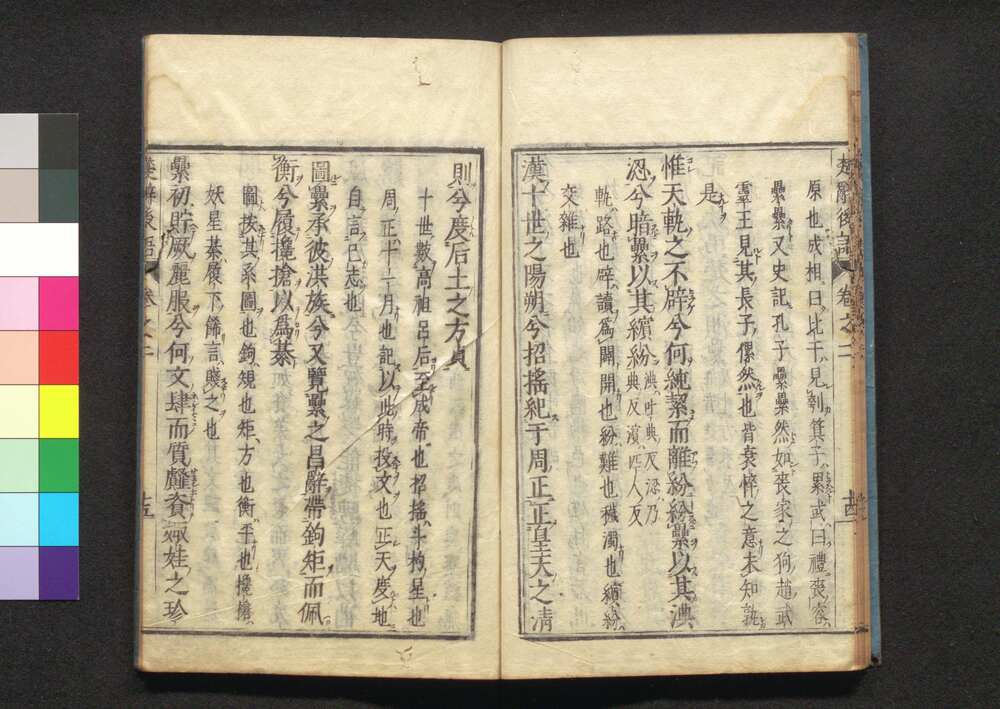 楚辭後語 卷之二 十四
原也成相曰比干見刳箕子累或曰禮喪容
纍纍又史記孔子纍纍然如喪家之狗趙武
靈王見其長子傫然也皆衰悴之意未知孰
是
惟天軌之不辟兮何純絜而離紛紛纍以其淟
涊兮暗纍以其繽紛淟吐典反涊乃典反濱匹人反
軌路也辟讀爲闢開也紛難也穢濁也繽紛
交雜也
漢十世之陽朔兮招搖紀于周正正皇天之清
則兮度后土之方貞
十世數高祖呂后至成帝也招搖斗杓星也
周正十一月也記以此時投文也正天度地
自言已志也
圖纍承彼洪族兮又覽纍之昌辭帶鉤矩而佩
衡兮履欃槍以爲綦
圖按其系圖也鉤規也矩方也衡平也欃槍
妖星綦履下飾言賤之也
纍初貯厥麗服兮何文肆而質䪥資娵娃之珍
楚辭後語 卷之二 十五